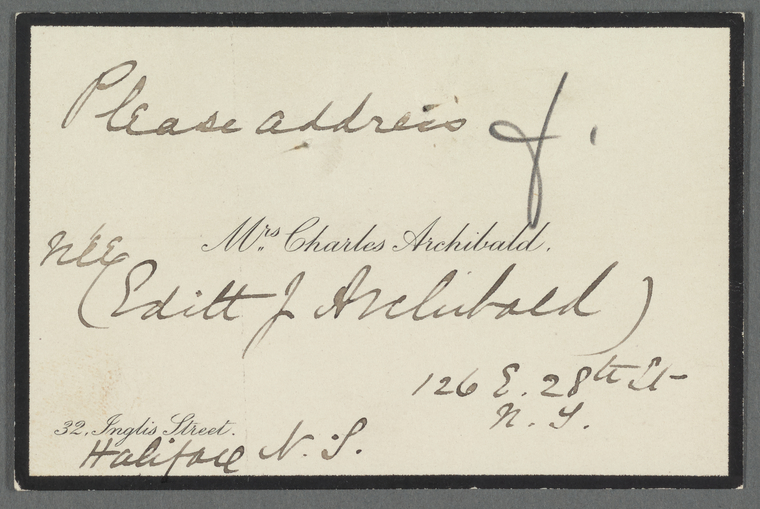 Please address
J.
née
Mrs. Charles Archibald.
(Edith J Archibald)
126 E. 28th St
N. Y.
32, Inglis Street.
Halifax N. S.